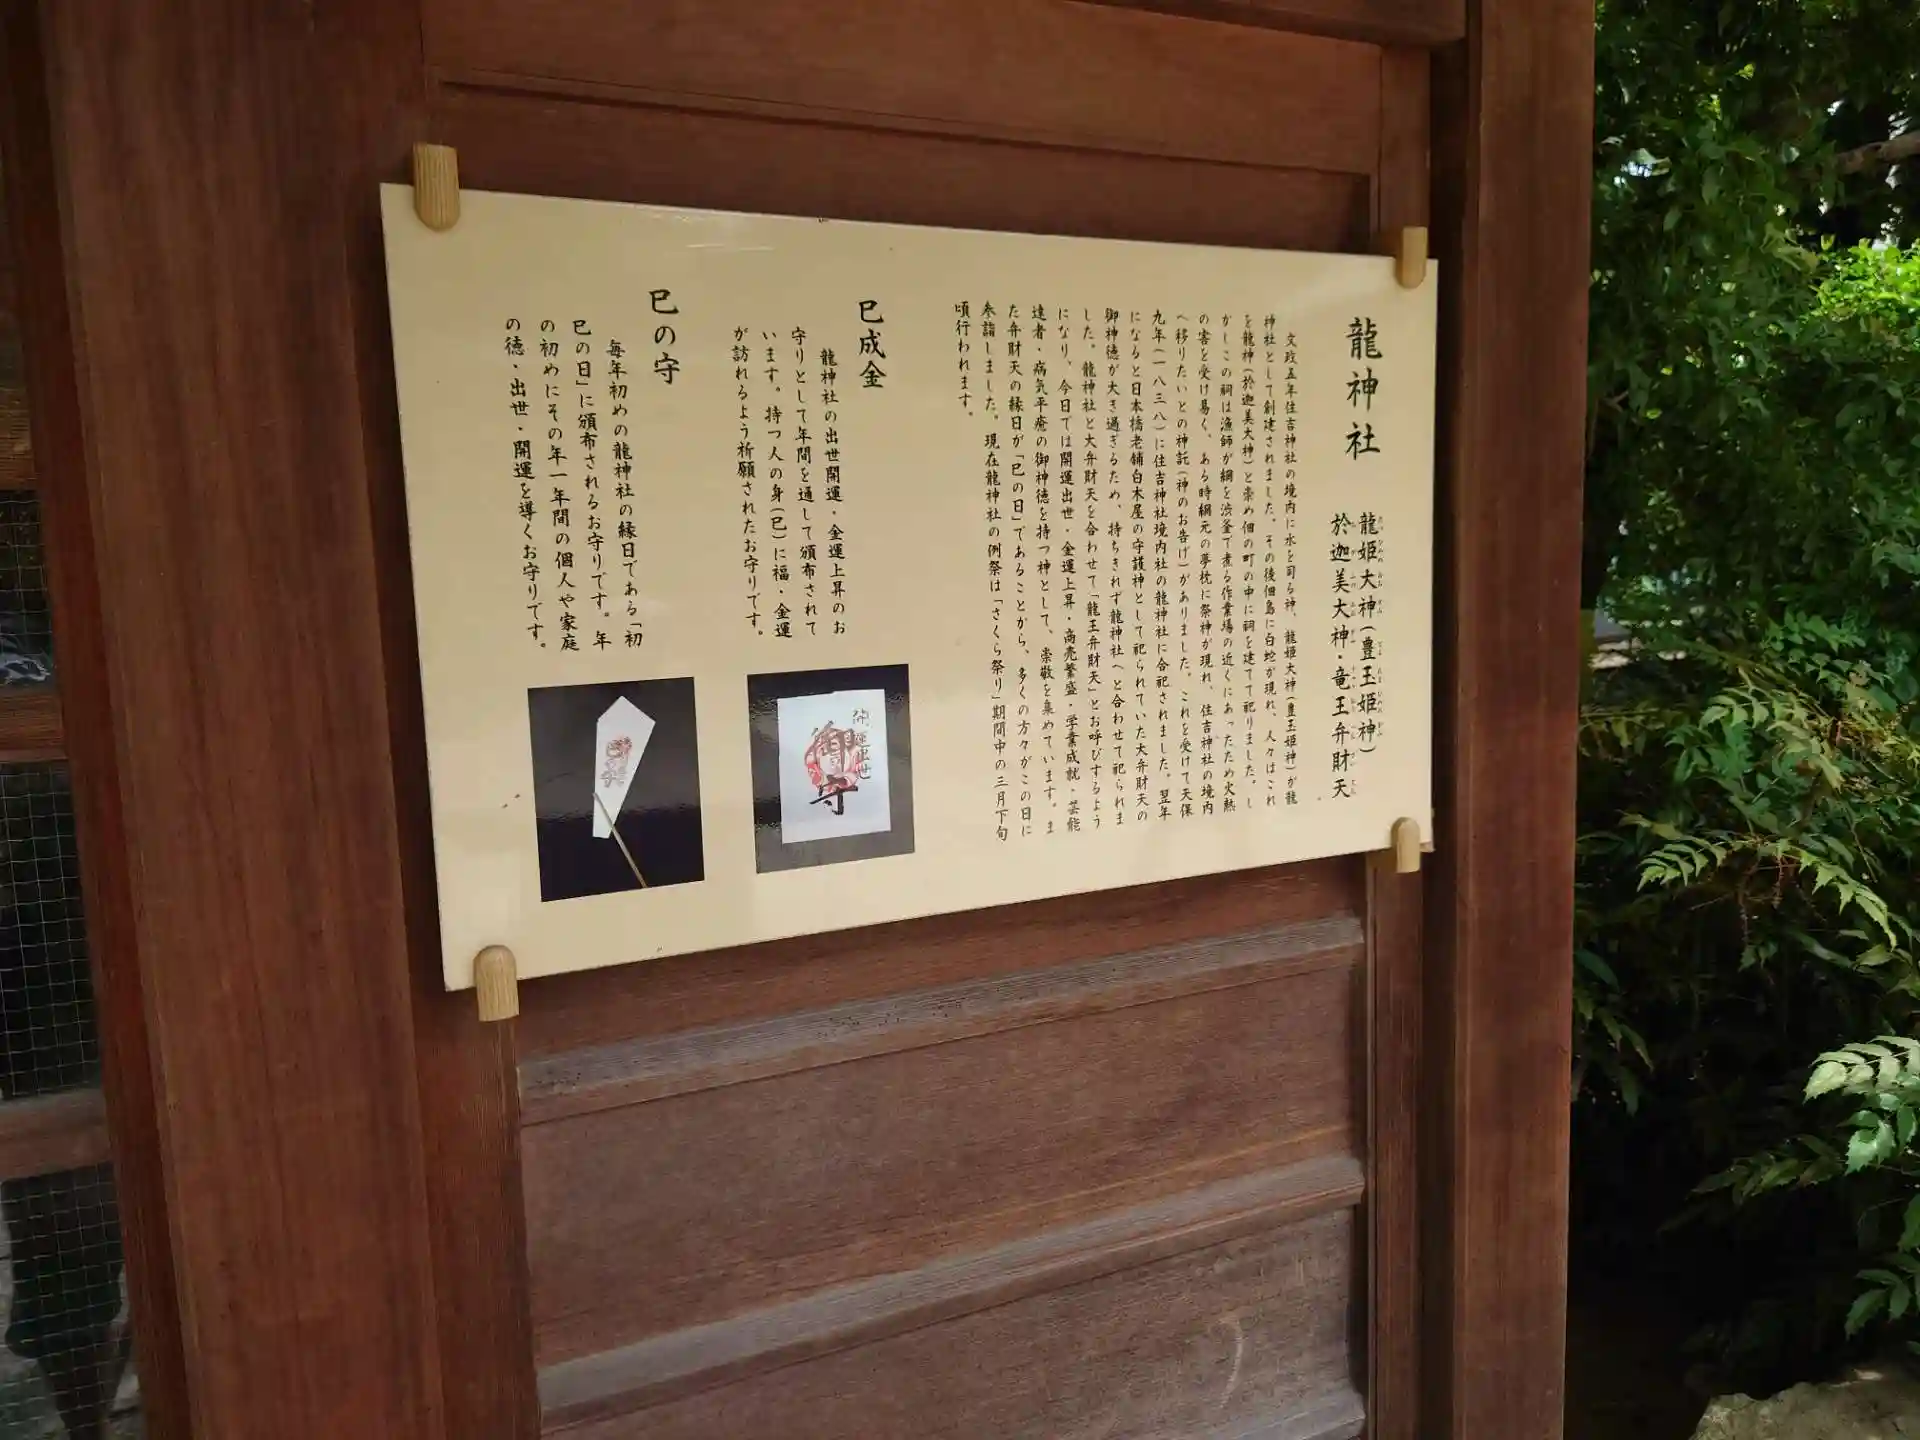 龍神社
龍姫大神(豊玉姫神)
於迦美大神・竜王弁財天
文政五年住吉神社の境内に水を司る神、龍姫大神(豊玉姫神)が龍
神社として創建されました。その後佃島に白蛇が現れ、人々はこれ
を龍神(於迦美大神)と崇め佃の町の中に祠を建てて祀りました。し
かしこの祠は漁師が網を渋釜で煮る作業場の近くにあったため火熱
の害を受け易く、ある時網元の夢枕に祭神が現れ、住吉神社の境内
へ移りたいとの神託(神のお告げ)がありました。これを受けて天保
九年(一八三八)に住吉神社境内社の龍神社に合祀されました。翌年
になると日本橋老舗白木屋の守護神として祀られていた大弁財天の
御神徳が大き過ぎるため、持ちきれず龍神社へと合わせて祀られま
した。龍神社と大弁財天を合わせて「龍王弁財天」とお呼びするよう
になり、今日では開運出世・金運上昇・商売繁盛・学業成就・芸能
達者・病気平癒の御神徳を持つ神として、崇敬を集めています。ま
た弁財天の縁日が「巳の日」であることから、多くの方々がこの日に
参詣しました。現在龍神社の例祭は「さくら祭り」期間中の三月下旬
頃行われます。
巳成金
龍神社の出世開運・金運上昇のお
守りとして年間を通して頒布されて
います。持つ人の身(巳)に福・金運
が訪れるよう祈願されたお守りです。
開運出世
御守
巳の守
毎年初めの龍神社の縁日である「初
巳の日」に頒布されるお守りです。年
の初めにその年一年間の個人や家庭
の徳・出世・開運を導くお守りです。